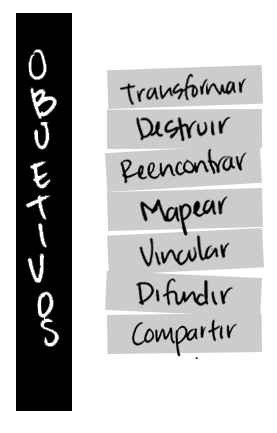 OBUETIVOS
Transformar
Destruir
Reencontrar
Mapear
Vincular
Difundir
Compartir